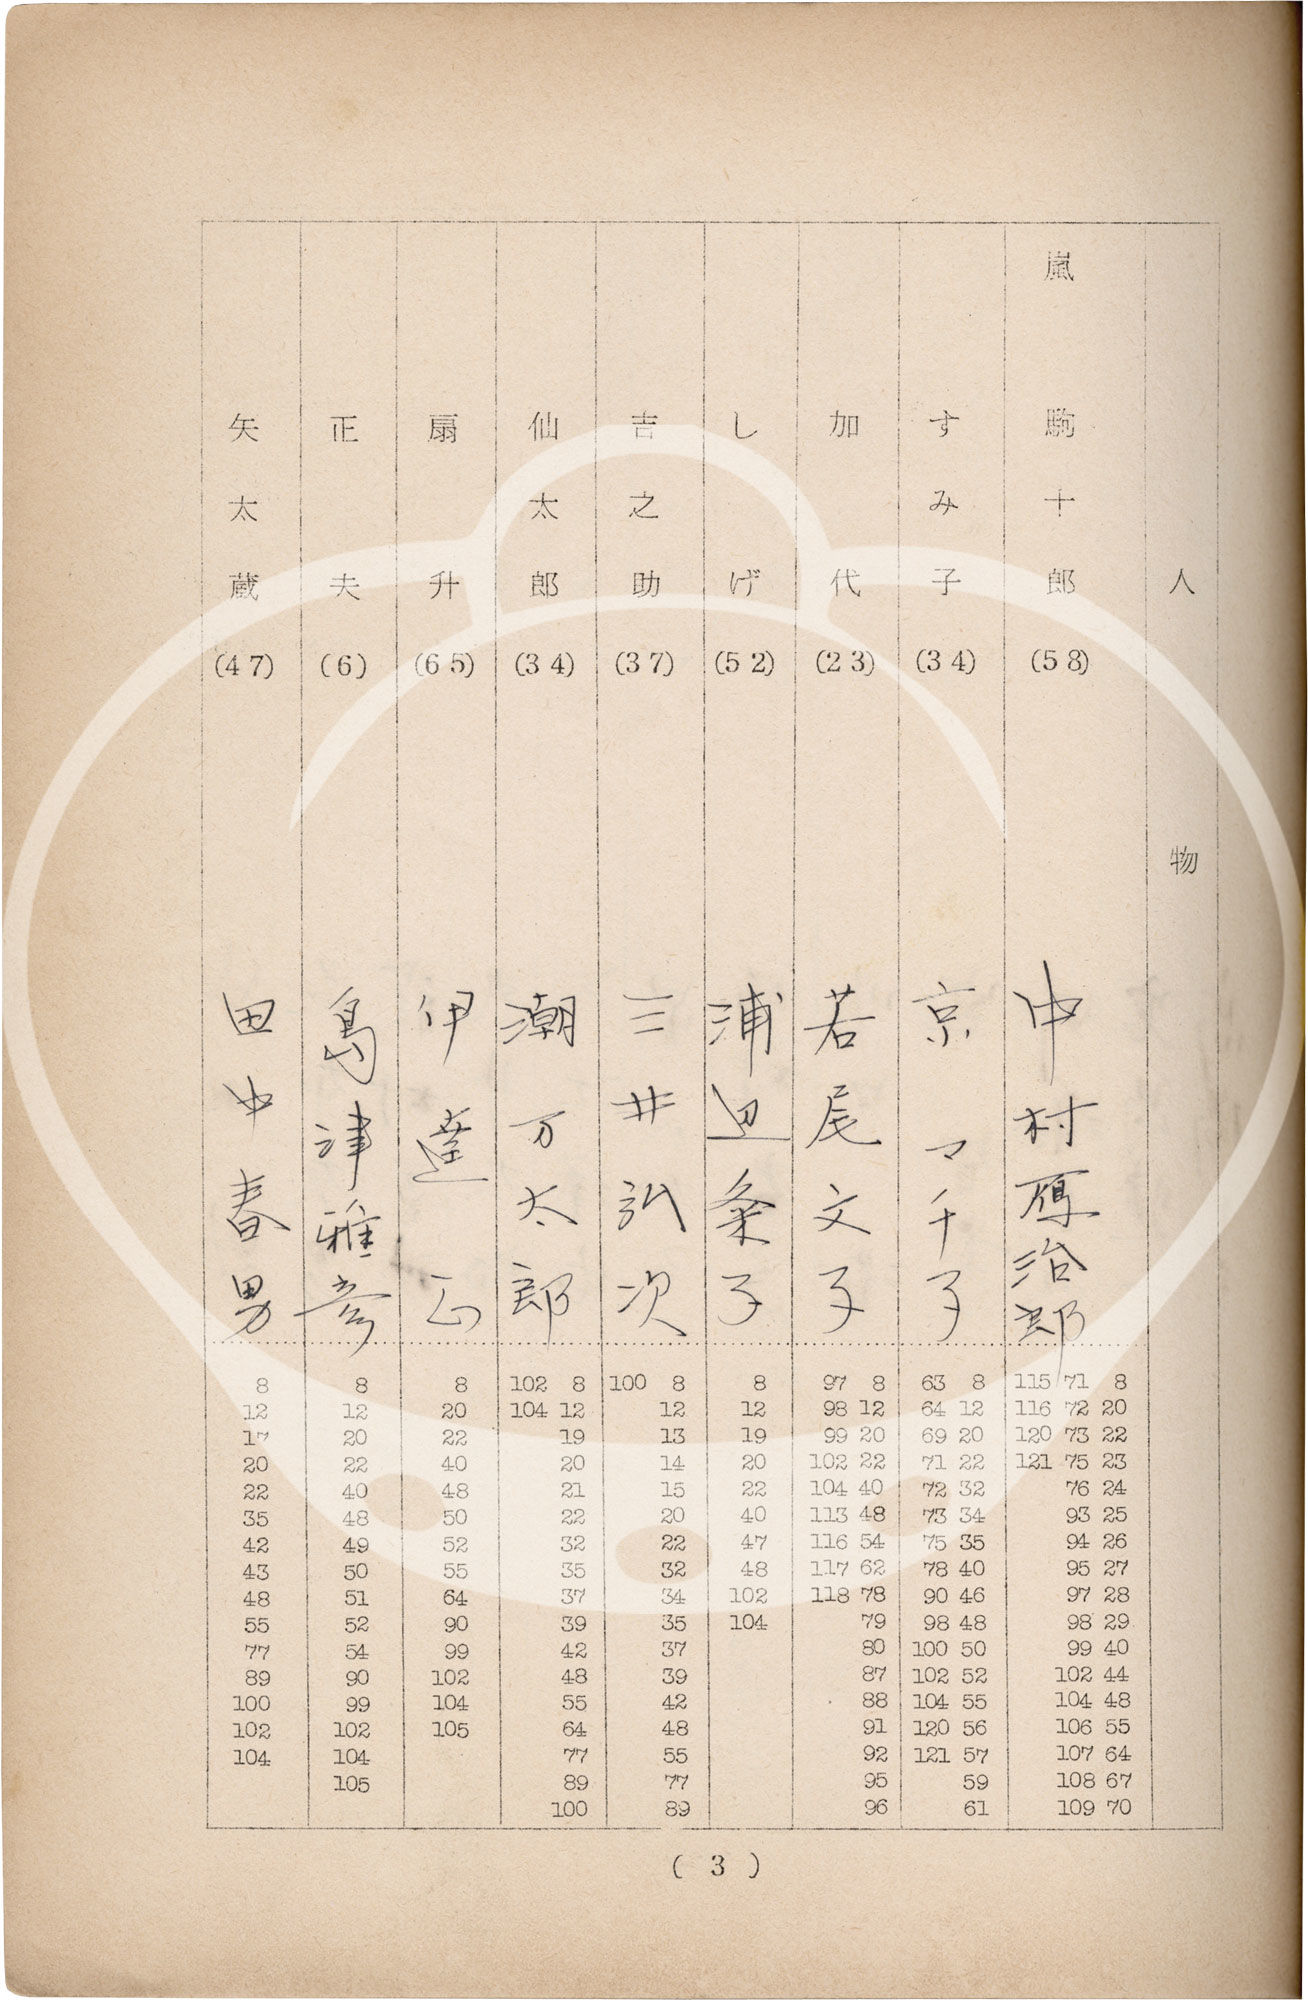 人物
嵐 駒十郎 (58) 中村鴈治郎
115 71 8
116 72 20
120 73 22
121 75 23
76 24
93 25
94 26
95 27
97 28
98 29
99 40
102 44
104 48
106 55
107 64
108 67
109 70
すみ子 (34) 京マチ子
63 8
64 12
69 20
71 22
72 32
73 34
75 35
78 40
90 46
98 48
100 50
102 52
104 55
120 56
121 57
59
61
加代 (23) 若尾文子
97 8
98 12
99 20
102 22
104 40
113 48
116 54
117 62
118 78
79
80
87
88
91
92
95
96
しげ (52) 浦辺粂子
8
12
19
20
22
40
47
48
102
104
吉之助 (37) 三井弘次
100 8
12
13
14
15
20
22
32
34
35
37
39
42
48
55
77
89
仙太郎 (34) 潮万太郎
102 8
104 12
19
20
21
22
32
35
37
39
42
48
55
64
77
89
100
扇升 (65) 伊達正
8
20
22
40
48
50
52
55
64
90
99
102
104
105
正夫 (6) 島津雅彦
8
12
20
22
40
48
49
50
51
52
54
90
99
102
104
105
矢太蔵 (47) 田中春男
8
12
17
20
22
35
42
43
48
55
77
89
100
102
104
( 3 )